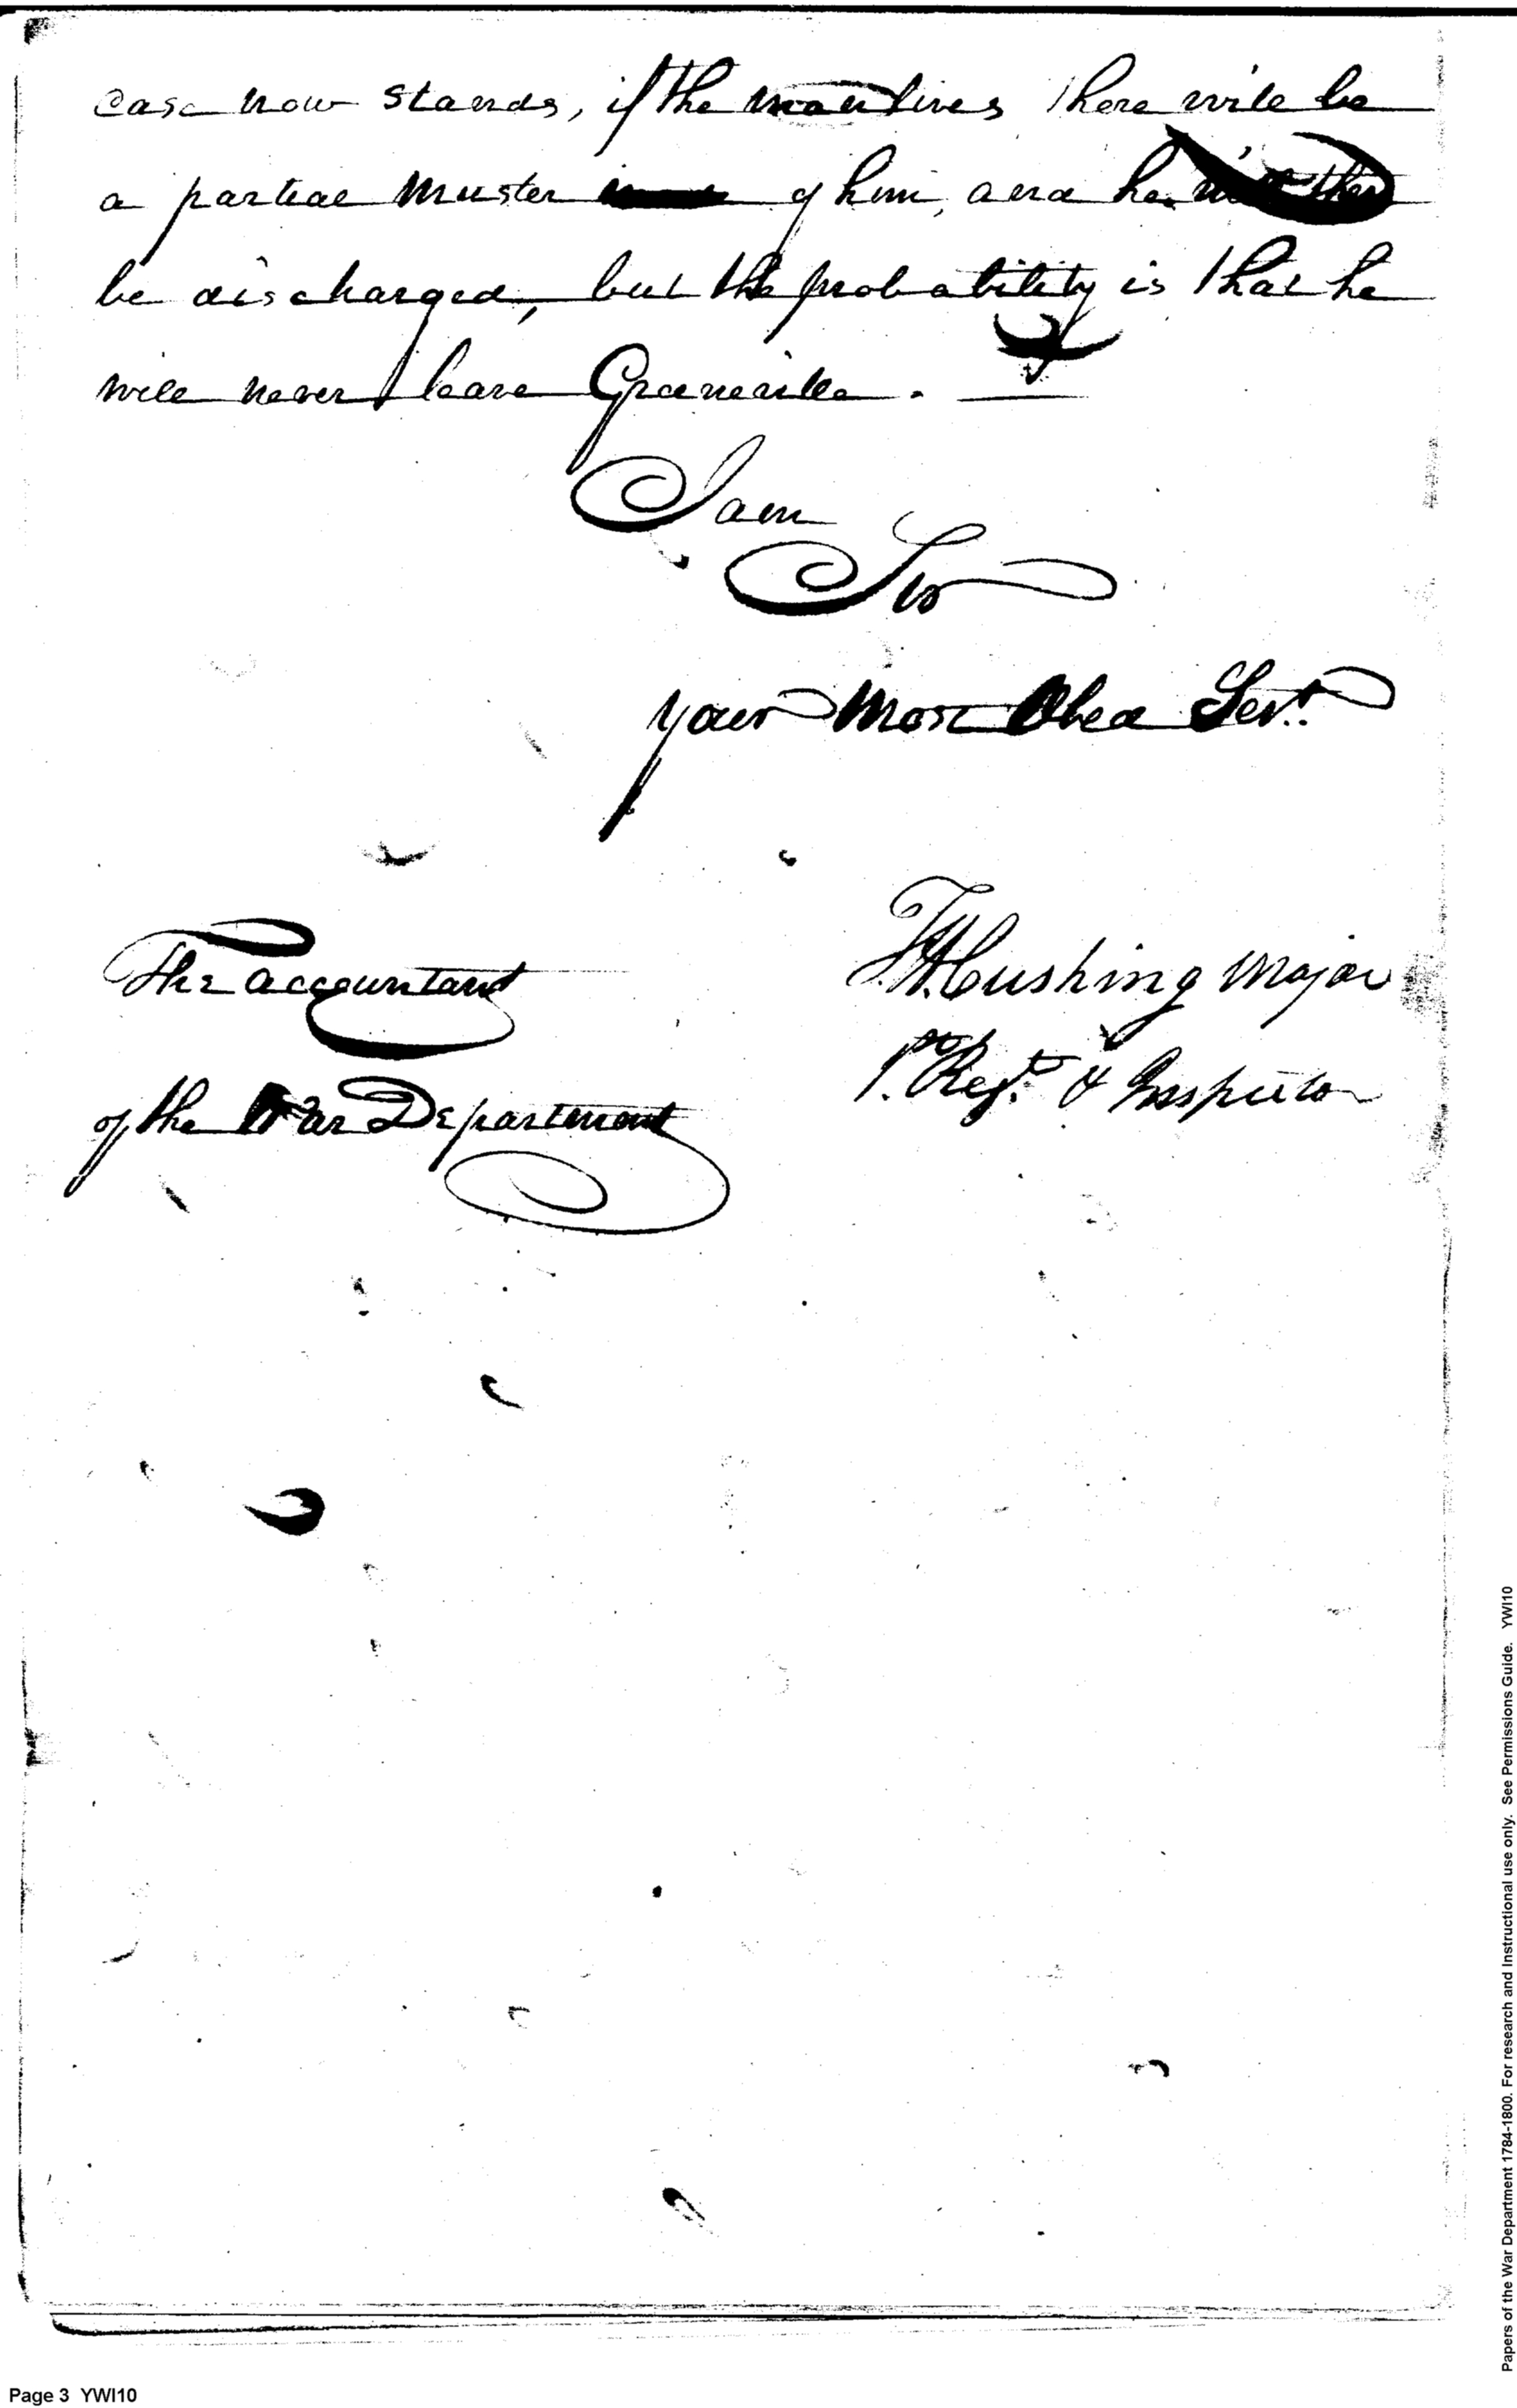 case now stands, if the man lives there will be
a partial muster of him, and he will then
be discharged, but the probability is that he
will never leave Greeneville.
I am
Sir
your Most Obed Servt.
T.H. Cushing Major
1st Regt. & Inspector
The accountant
of the War Department
Papers of the War Department 1784-1800. For research and Instructional use only. See Permissions Guide. YWI10
Page 3 YWI10